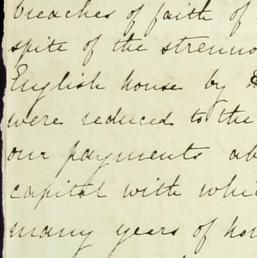 breaches of faith of
spite of the strenuo
English house by
were reduced to the
our payments ab
capital with whi
many years of ho